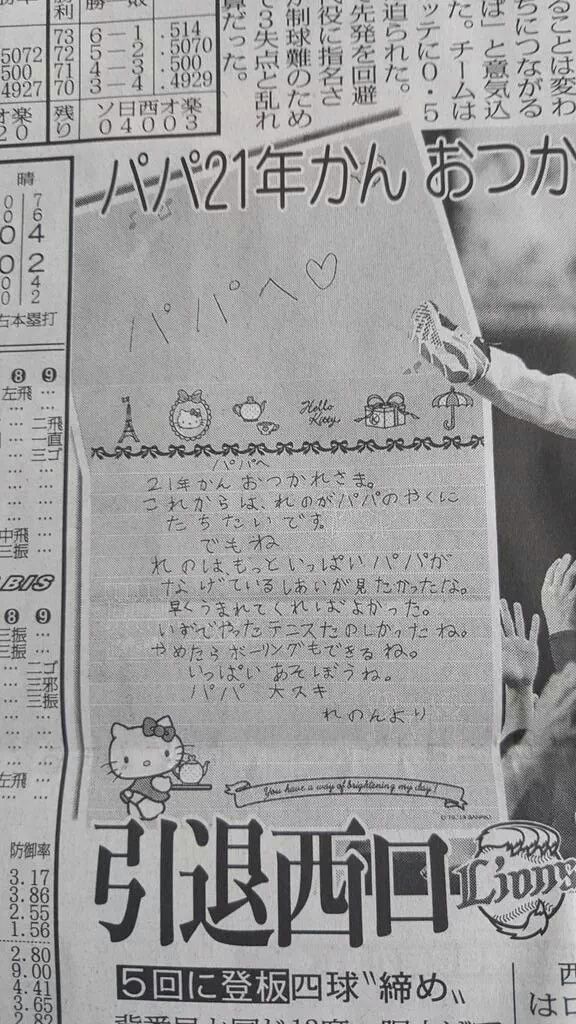 ることは変わ
ちにつながる
ば」と意気込
た。チームは
ッテに0・5
迫られた。
先発を回避
代役に指名さ
が制球難のため
で3失点と乱れ
算だった。
73 6-1 .514
72 5-2 .5070
71 4-3 .500
70 3-4 .4929
残り ソ0 日4 西0 オ0 楽3
パパ21年かん おつか
パパへ♡
Hello Kitty
パパへ
21年かんおつかれさま。
これからは、れのがパパのやくに
たちたいです。
でもね
れのは、もっといっぱいパパが
なげているしあいが見たかったな。
早くうまれてくればよかった。
いずでやったテニスたのしかったね。
やめたらボーリングもできるね。
いっぱいあそぼうね。
パパ 大スキ
れのんより
You have a way of brightening my day!
晴
古本塁打
❽ ❾
左飛 …
二飛
一直
三ゴ
中飛 …
三振 …
BIS
❽ ❾
三振 …
三振 …
二ゴ
三邪
三振
左飛 …
防御率
3.17
3.86
2.55
1.56
2.80
9.00
4.41
3.65
2.82
引退西口
Lions
5回に登板四球〝締め〟